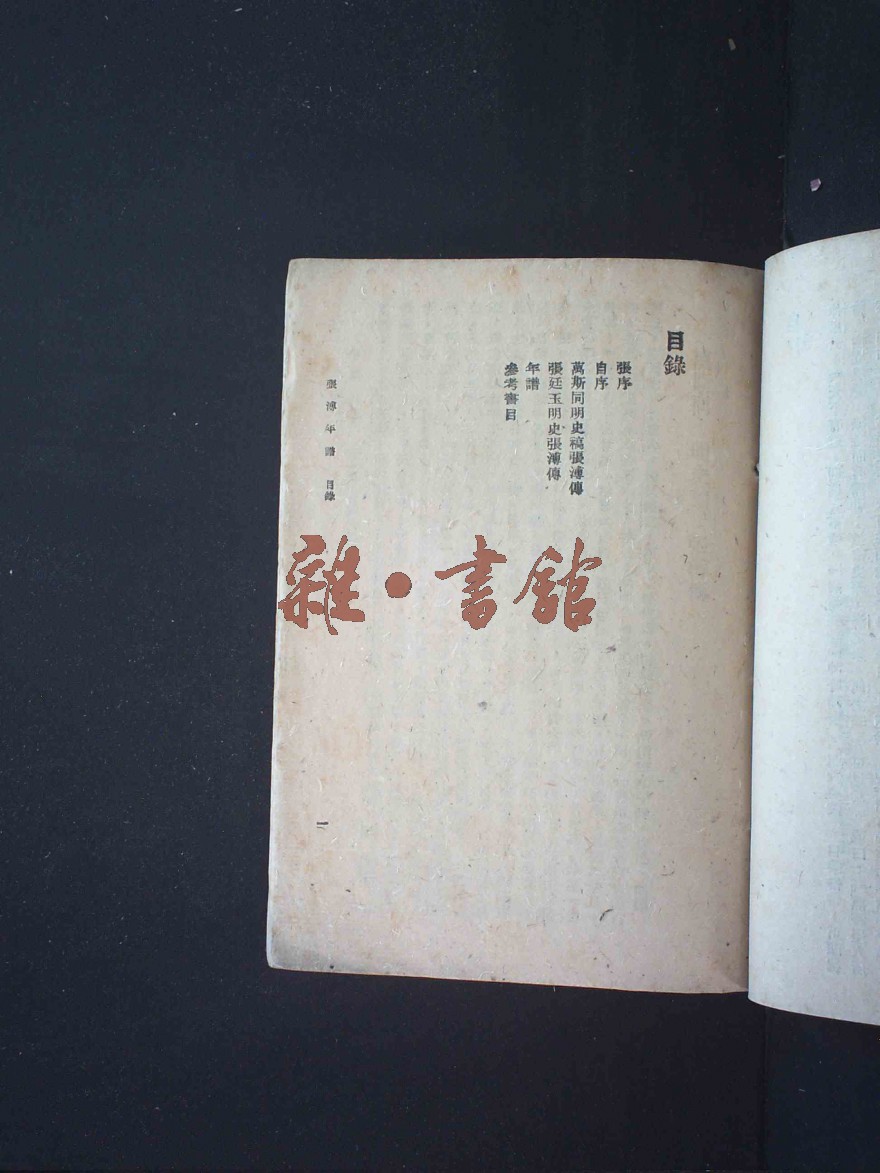 目錄
張序
自序
萬斯同明史稿張溥傳
張廷玉明史張溥傳
年譜
參考書目
張溥年譜 目錄
一
雜·書館